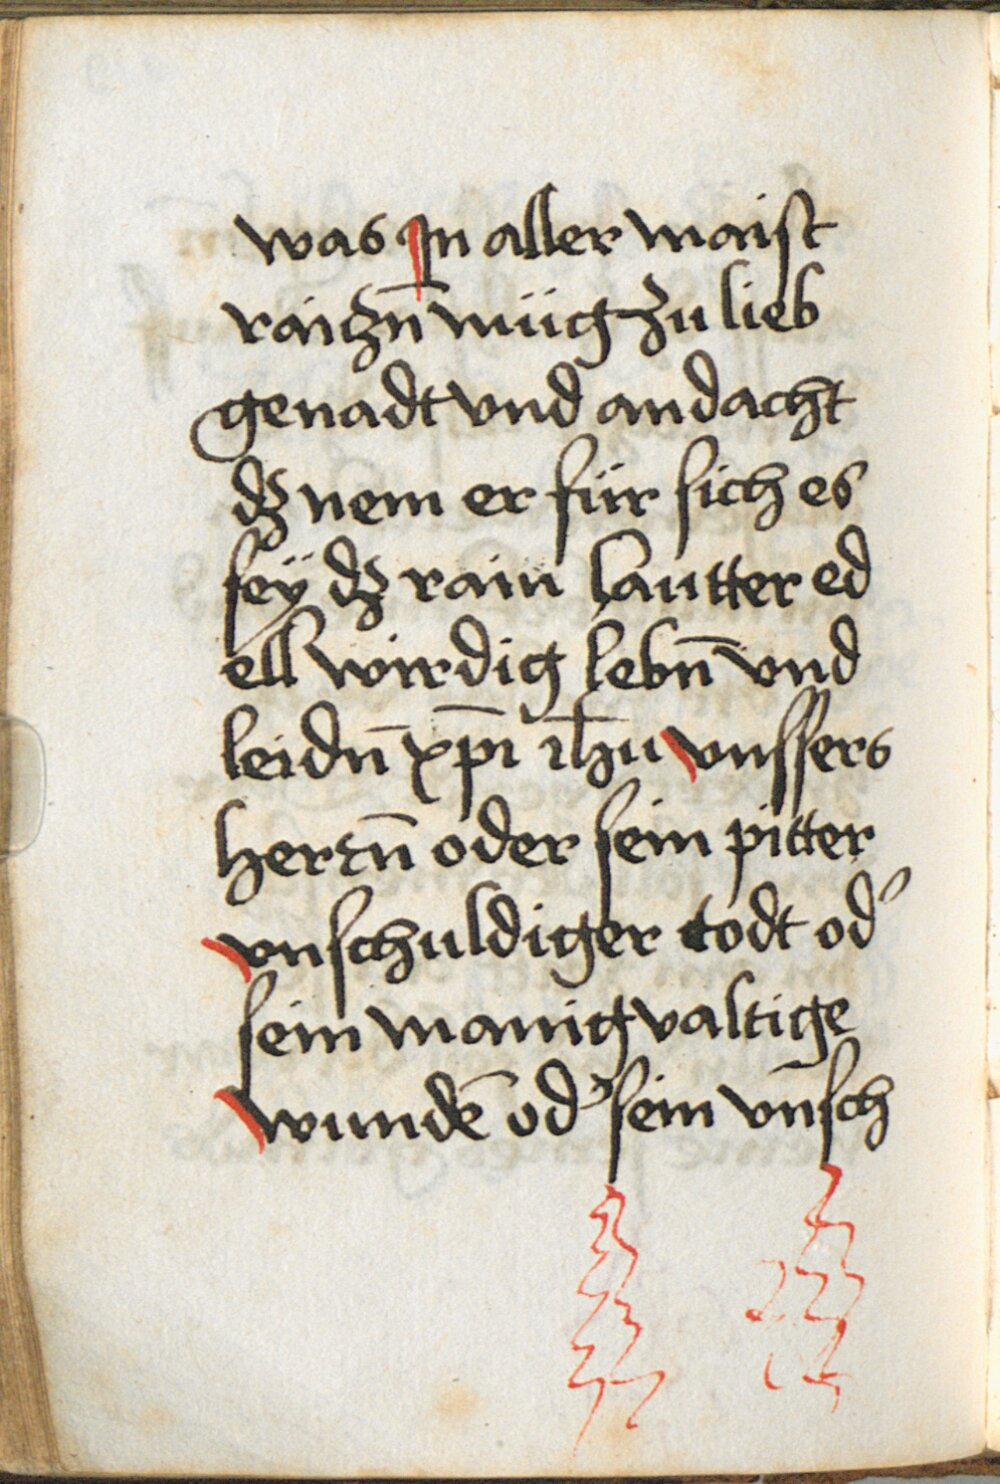 was jn aller maist
raitzn̄ müg zu lieb
genadt vnd andacht
dʒ nem er für sich es
seÿ dʒ rain lautter ed
ell wirdig lebn̄ vnd
leidn̄ xp̄i ih̄u vnssers
herrn̄ oder sein pitter
vnschuldiger todt od'
sein manigvaltige
wundē od' sein vn̄sch